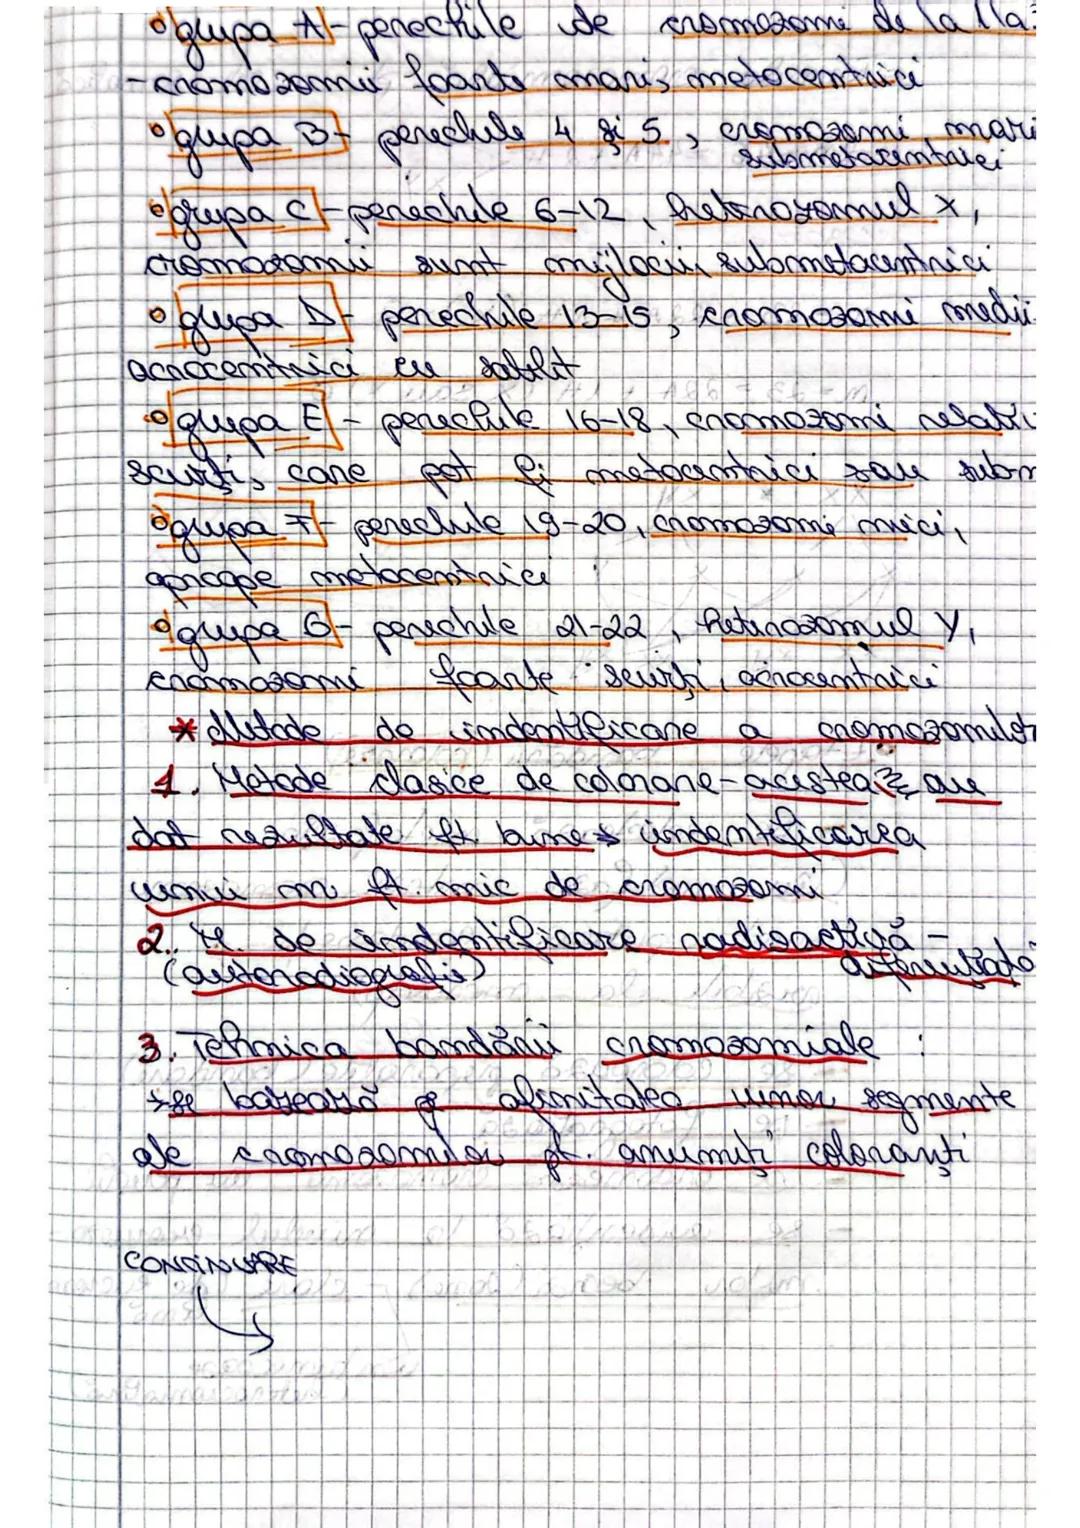 grupa A - perechile de cromozomi de la 1 la 3
- cromozomii foarte mari, metacentrici
grupa B - perechile 4 și 5, cromozomi mari
submetacentrici
grupa C - perechile 6-12, heterozomul X,
cromozomii sunt mijlocii, submetacentrici
grupa D - perechile 13-15, cromozomi medii
acrocentrici cu satelit
grupa E - perechile 16-18, cromozomi relativ
scurți, care pot fi metacentrici sau subm
grupa F - perechile 19-20, cromozomi mici,
aproape metacentrici
grupa G - perechile 21-22, heterozomul Y,
cromozomi foarte scurți, acrocentrici
* Metode de indentificare a cromozomilor
1. Metode clasice de colorare - acestea au
dat rezultate ft. bune indentificarea
unui nr ft. mic de cromozomi
2. M. de indentificare radioactivă -
(autoradiografie) diferențiată
3. Tehnica bandării cromozomiale :
→ se bazează pe afinitatea unor segmente
ale cromozomilor pt. anumiți coloranți
CONTINUARE